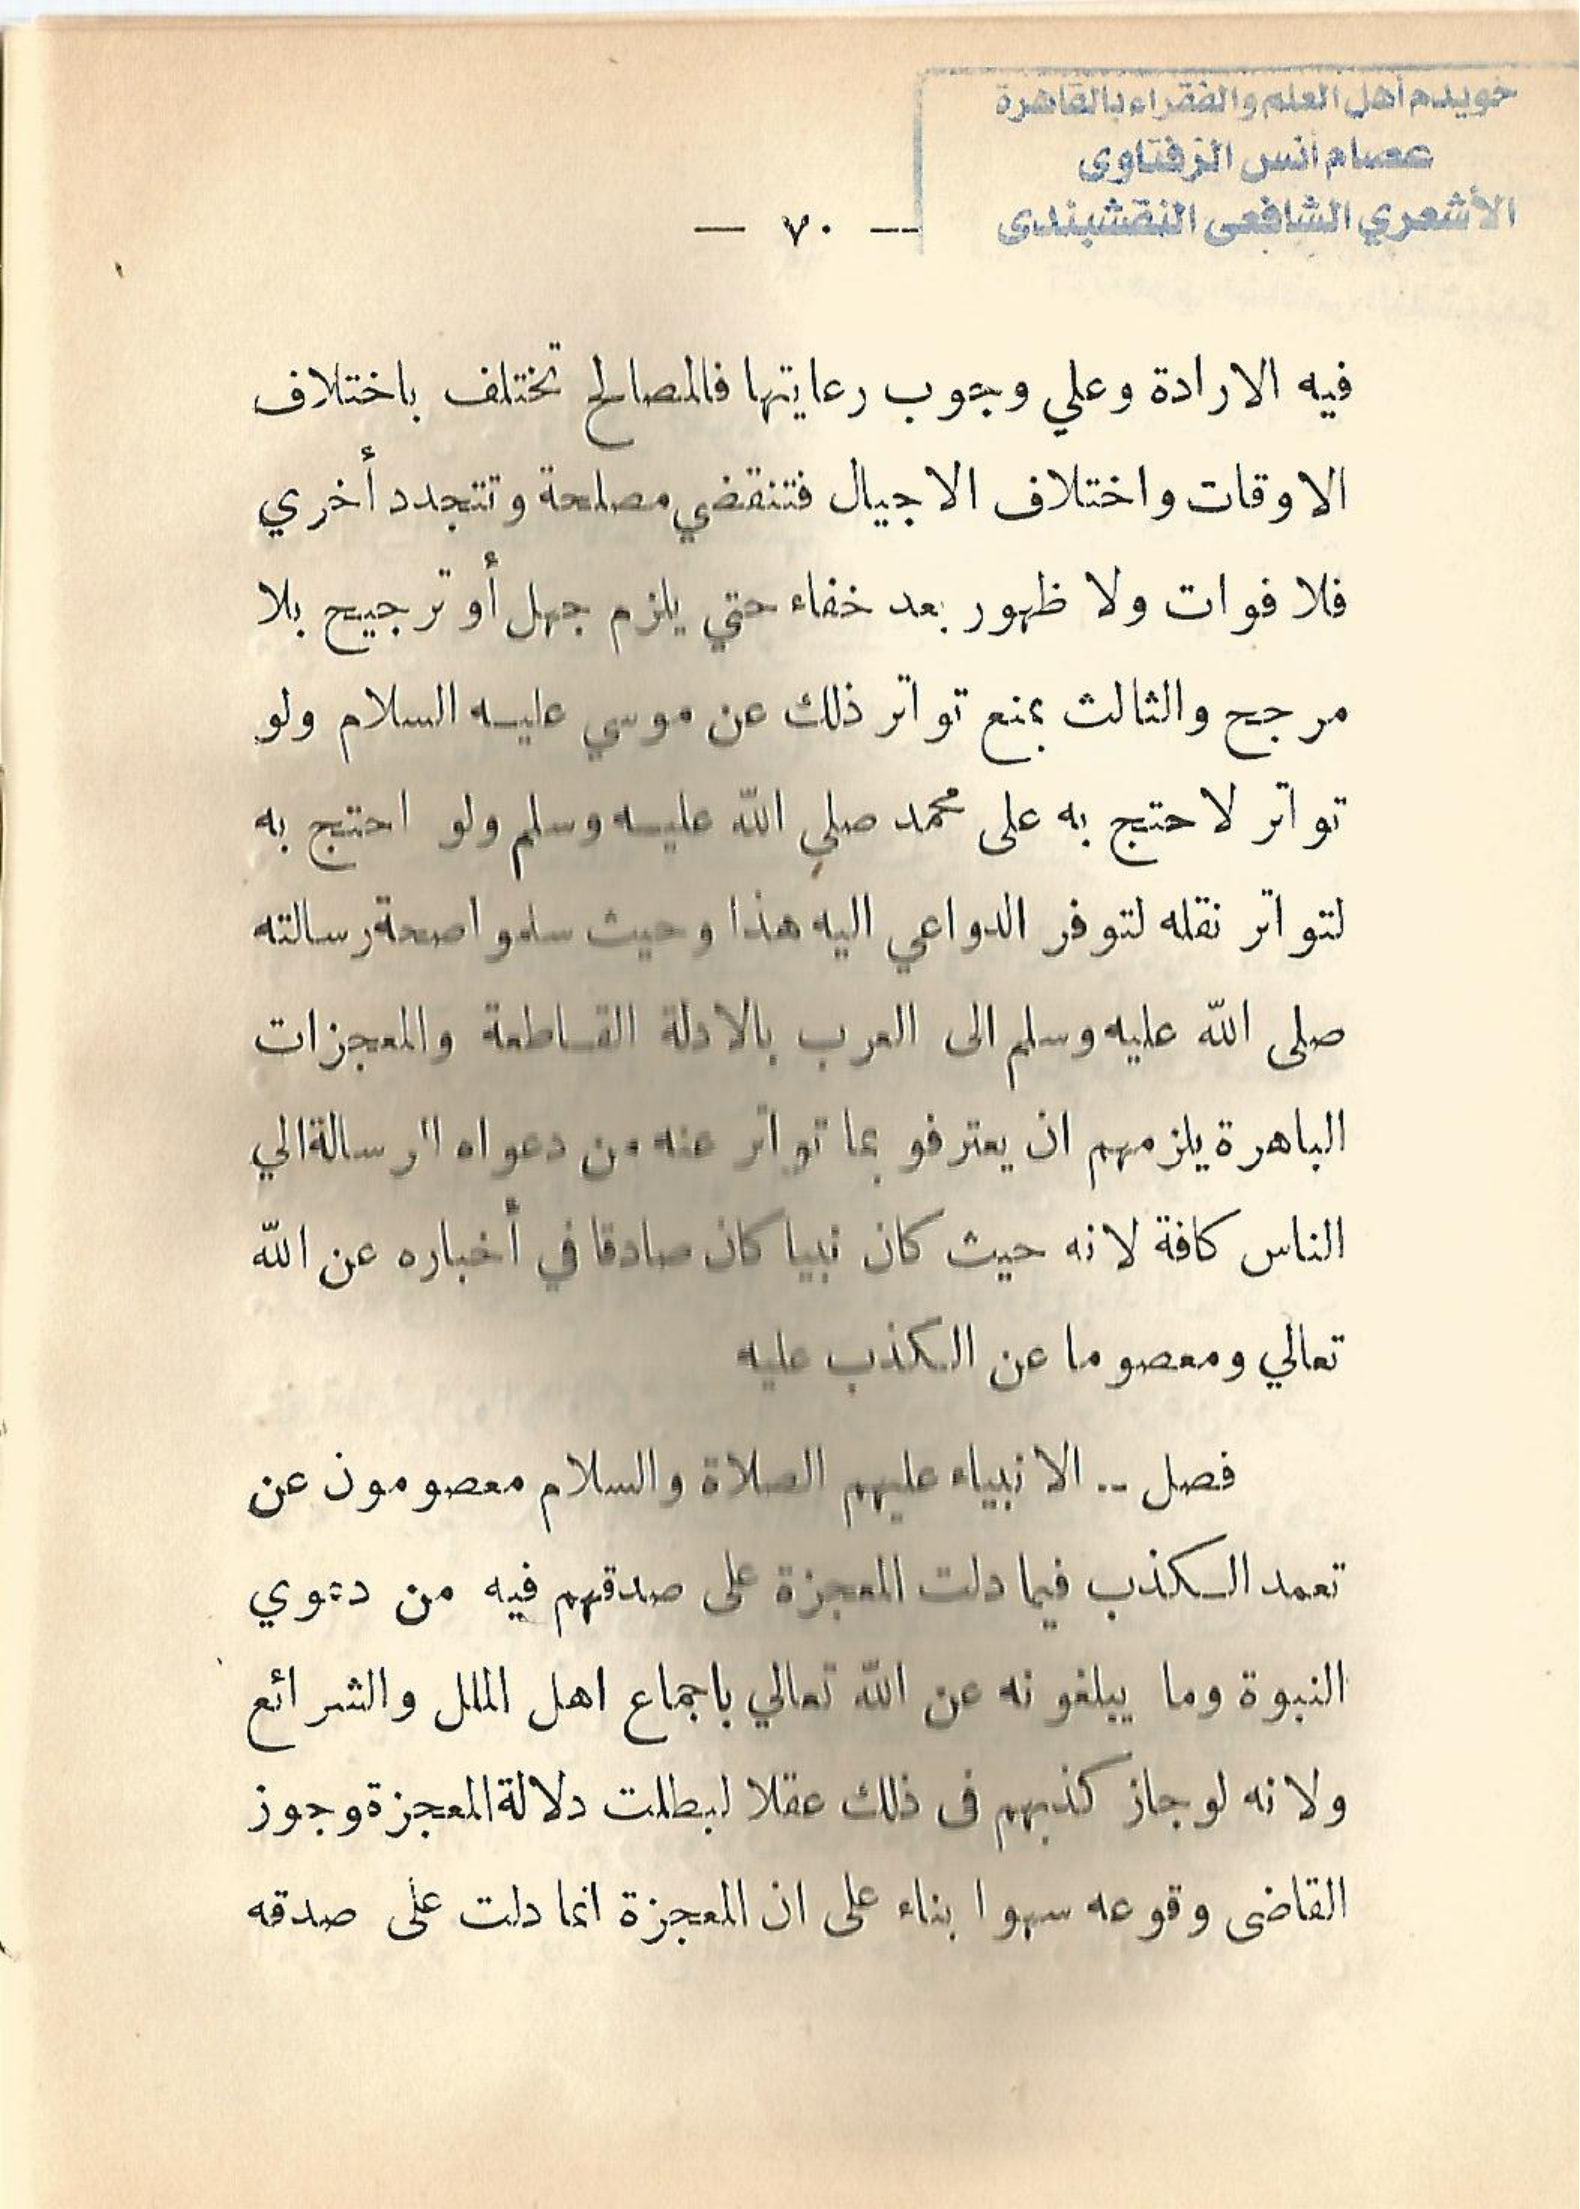 خويدم أهل العلم والفقراء بالقاهرة
عصام أنس الزفتاوى
الأشعري الشافعى النقشبندى
— ٧٠ —
فيه الارادة وعلي وجوب رعايتها فالمصالح تختلف باختلاف
الاوقات واختلاف الاجيال فتنقضي مصلحة وتتجدد أخري
فلا فوات ولا ظهور بعد خفاء حتي يلزم جهل أو ترجيح بلا
مرجح والثالث بمنع تواتر ذلك عن موسي عليه السلام ولو
تواتر لاحتج به على محمد صلي الله عليه وسلم ولو احتج به
لتواتر نقله لتوفر الدواعي اليه هذا وحيث سلموا صحة رسالته
صلى الله عليه وسلم الى العرب بالادلة القاطعة والمعجزات
الباهرة يلزمهم ان يعترفو بما تواتر عنه من دعواه الرسالة الي
الناس كافة لانه حيث كان نبيا كان صادقا في أخباره عن الله
تعالي ومعصوما عن الكذب عليه
فصل -- الانبياء عليهم الصلاة والسلام معصومون عن
تعمد الكذب فيما دلت المعجزة على صدقهم فيه من دعوي
النبوة وما يبلغونه عن الله تعالي باجماع اهل الملل والشرائع
ولانه لو جاز كذبهم فى ذلك عقلا لبطلت دلالة المعجزة وجوز
القاضى وقوعه سهوا بناء على ان المعجزة انما دلت على صدقه